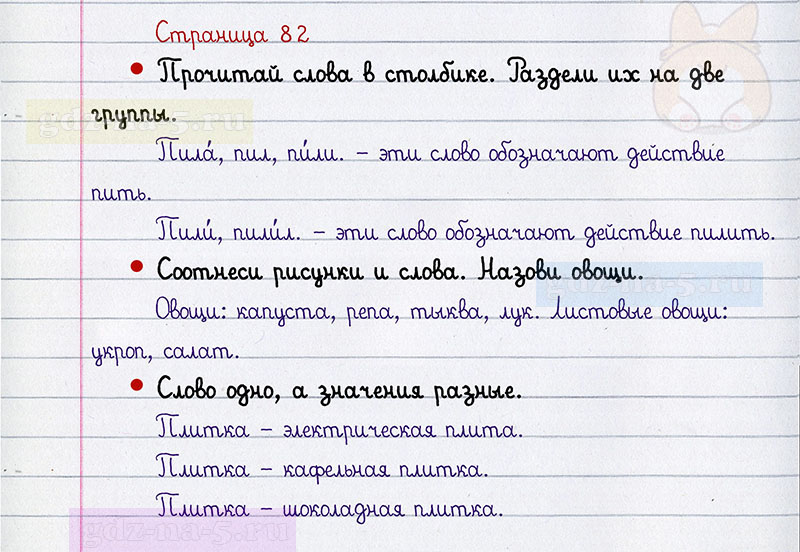 Страница 82
• Прочитай слова в столбике. Раздели их на две
группы.
gdz-na-5.ru
Пила́, пил, пи́ли. – эти слово обозначают действие
пить.
Пили́, пили́л. – эти слово обозначают действие пилить.
• Соотнеси рисунки и слова. Назови овощи.
gdz-na-5.ru
Овощи: капуста, репа, тыква, лук. Листовые овощи:
укроп, салат.
• Слово одно, а значения разные.
Плитка – электрическая плита.
Плитка – кафельная плитка.
Плитка – шоколадная плитка.
gdz-na-5.ru